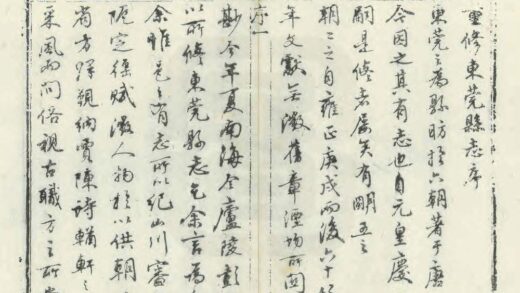 重修東莞縣志序
東莞之為縣昉於六朝著于唐
今因之其有志也自元皇慶
嗣是修者屢矣有明五之
朝二之自雍正庚戌而後六十
年文獻無徵舊章湮所関
序一
尠今年夏南海令廬陵彭
以所修東莞縣志乞余言為
余惟邑之有志所以紀山川審
阨定徭賦徵人物於以供朝
省方擇覲納賈陳詩輶軒之
采風而問俗視古職方之所